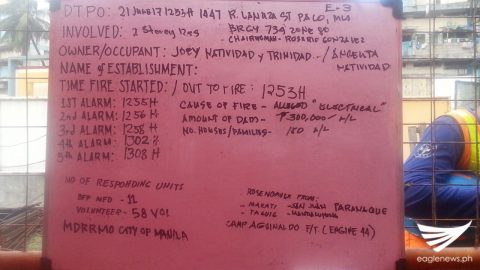 E-3
DTPO: 21 JUNE 17 1253H 1447 R. St PACO, MLA
INVOLVED: 2 Storey Res BRGY 734 ZONE 80
CHAIRWOMAN - ROSARIO GONZALEZ
OWNER/OCCUPANT: JOEY NATIVIDAD y TRINIDAD /
NATIVIDAD
NAME OF ESTABLISHMENT:
TIME FIRE STARTED: / OUT TO FIRE: 1253H
1ST ALARM: 1255H CAUSE OF FIRE - ALLEGED "ELECTRICAL"
2nd ALARM: 1256H AMOUNT OF DAM - ₱300,000 /
3rd ALARM: 1258H NO. HOUSES/FAMILIES - 150
4th ALARM: 1302H
5th ALARM: 1308H
NO OF RESPONDING UNITS
BFP MFD - 11
VOLUNTEER - 58 VOL
MDRRMO CITY OF MANILA
FROM:
- MAKATI - SAN JUAN PARANAQUE
- TAGUIG - MANDALUYONG
CAMP AGUINALDO F/T (ENGINE 44)
eaglenews.ph